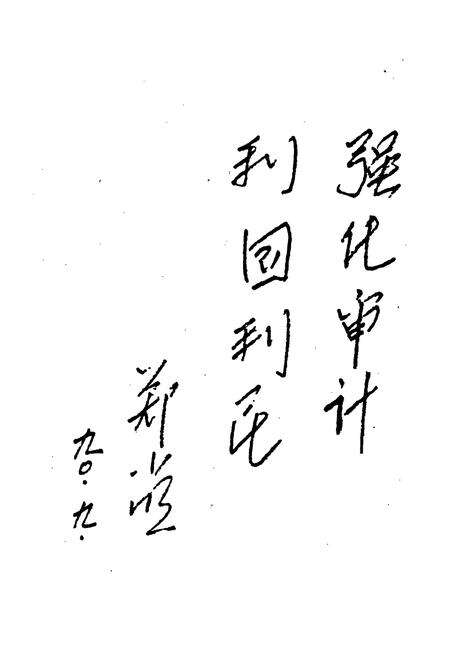 强化审计
利国利民
郑
九〇.九.